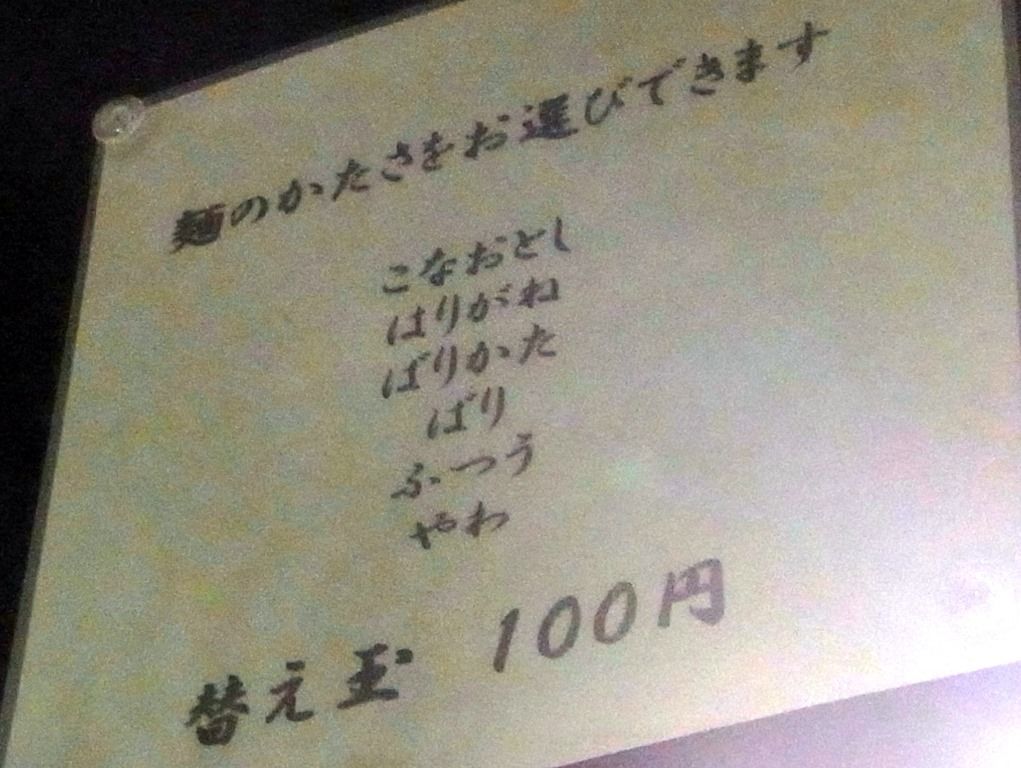 麺のかたさをお選びできます
こなおとし
はりがね
ばりかた
ばり
ふつう
やわ
替え玉 100円